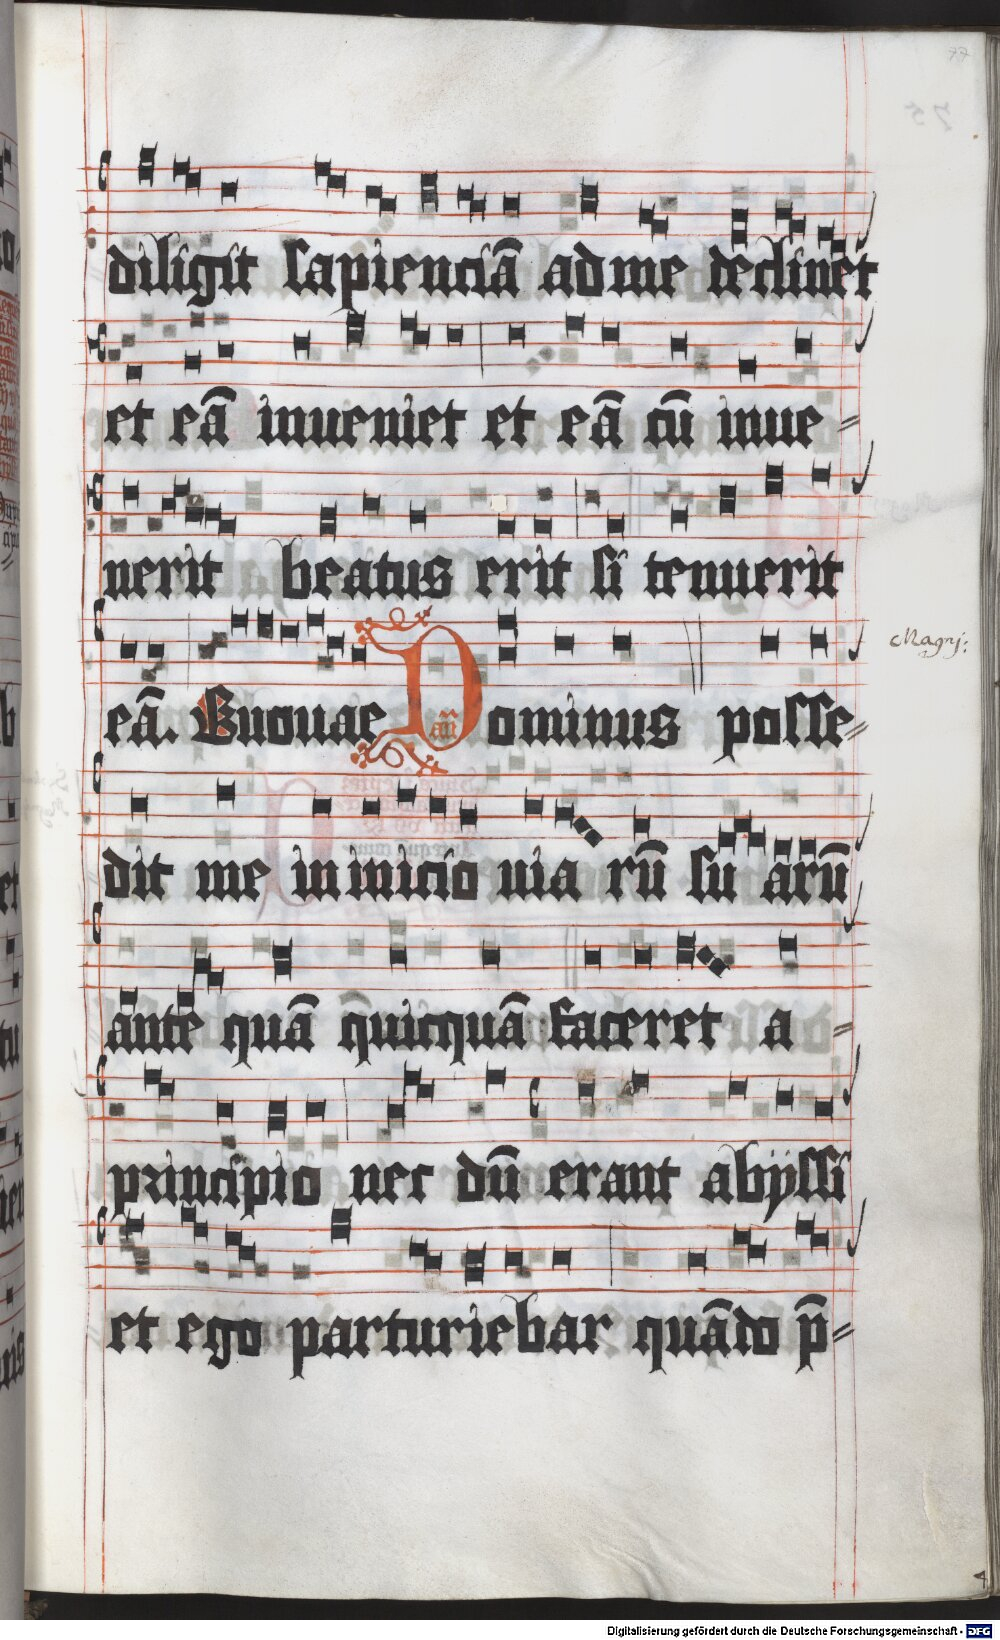 77
diligit sapienciā ad me declinet
et eā inueniet et eā cū inue=
nerit beatus erit si tenuerit
Magn:
eā. Euouae Dominus posse=
añ
dit me in inicio uia rū su arū
ante quā quicquā faceret a=
principio nec dū erant abyssi
et ego parturiebar quādo p̄=
Digitalisierung gefördert durch die Deutsche Forschungsgemeinschaft - DFG